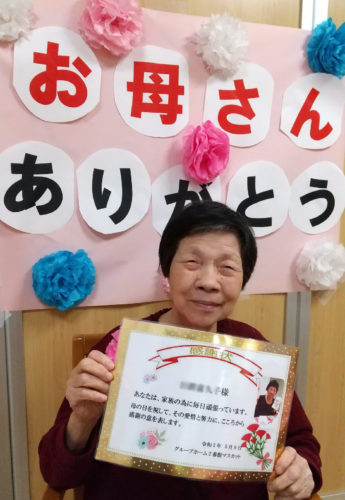 お母さん
ありがとう
感謝状
様
あなたは、家族の為に毎日頑張っています。
母の日を祝して、その愛情と努力に、こころから
感謝の意を表します。
令和2年 5月9日
グループホーム2番館マスカット